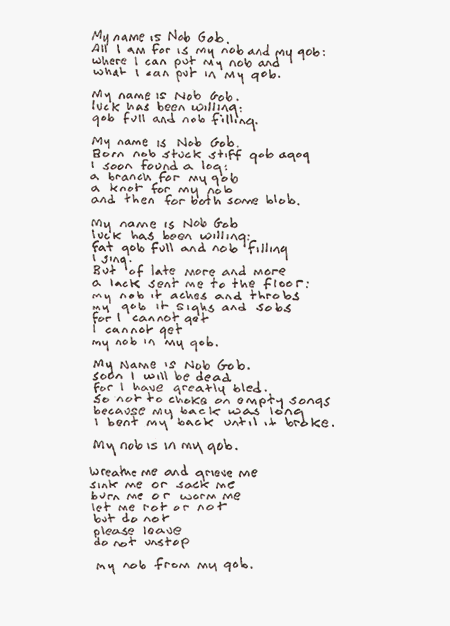 My name is Nob Gob.
All I am for is my nob and my gob:
where I can put my nob and
what I can put in my gob.
My name is Nob Gob.
luck has been willing:
gob full and nob filling.
My name is Nob Gob.
Born nob stuck stiff gob agog
I soon found a log:
a branch for my gob
a knot for my nob
and then for both some blob.
My name is Nob Gob
luck has been willing:
fat gob full and nob filling
I sing.
But of late more and more
a lack sent me to the floor:
my nob it aches and throbs
my gob it sighs and sobs
for I cannot get
I cannot get
my nob in my gob.
My Name is Nob Gob.
soon I will be dead
for I have greatly bled.
so not to choke on empty songs
because my back was long
I bent my back until it broke.
My nob is in my gob.
wreathe me and grieve me
sink me or sack me
burn me or worm me
let me rot or not
but do not
please leave
do not unstop
my nob from my gob.